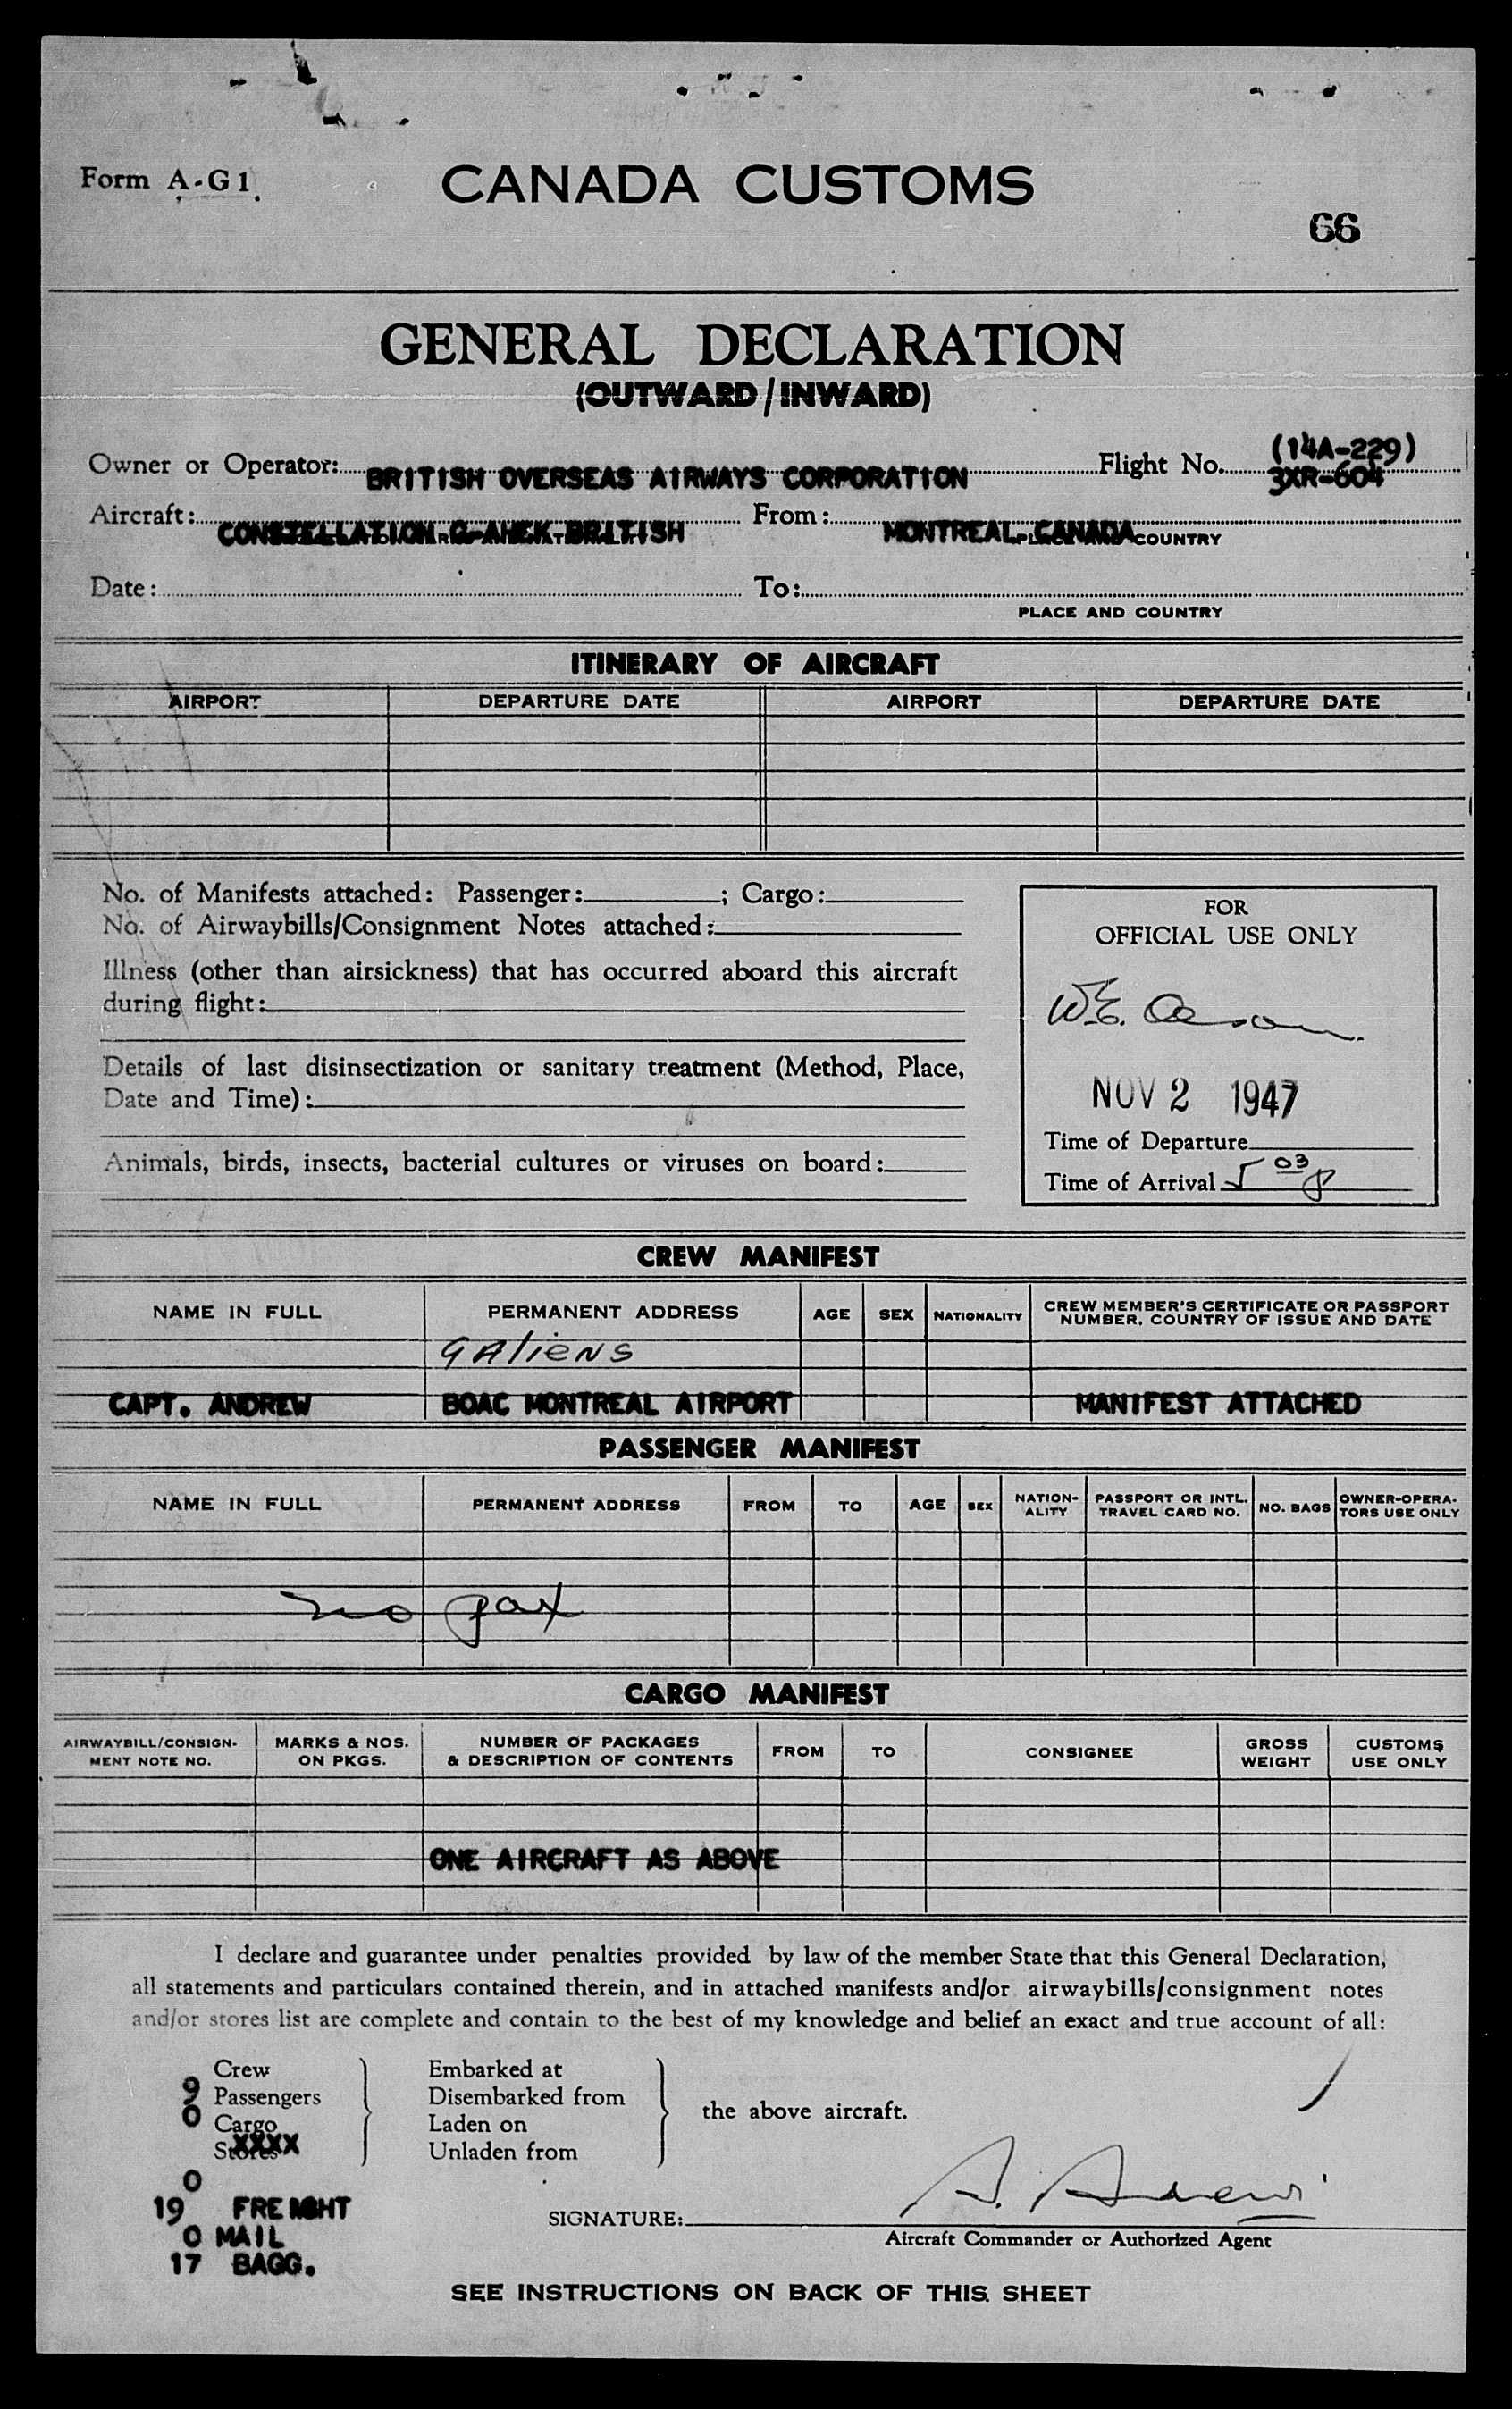 Form A-G1.
CANADA CUSTOMS
66
GENERAL DECLARATION
(OUTWARD/INWARD)
Owner or Operator: BRITISH OVERSEAS AIRWAYS CORPORATION Flight No. (14A-229)
3XR-604
Aircraft: CONSTELLATION G-AHEK BRITISH From: MONTREAL CANADA COUNTRY
Date: To:
PLACE AND COUNTRY
ITINERARY OF AIRCRAFT
AIRPORT DEPARTURE DATE AIRPORT DEPARTURE DATE
No. of Manifests attached: Passenger: ; Cargo:
No. of Airwaybills/Consignment Notes attached:
Illness (other than airsickness) that has occurred aboard this aircraft
during flight:
Details of last disinsectization or sanitary treatment (Method, Place,
Date and Time):
Animals, birds, insects, bacterial cultures or viruses on board:
FOR
OFFICIAL USE ONLY
W.E.
NOV 2 1947
Time of Departure
Time of Arrival 5 03 p
CREW MANIFEST
NAME IN FULL PERMANENT ADDRESS AGE SEX NATIONALITY CREW MEMBER'S CERTIFICATE OR PASSPORT
NUMBER, COUNTRY OF ISSUE AND DATE
9 Aliens
CAPT. ANDREW BOAC MONTREAL AIRPORT MANIFEST ATTACHED
PASSENGER MANIFEST
NAME IN FULL PERMANENT ADDRESS FROM TO AGE SEX NATION-
ALITY PASSPORT OR INTL.
TRAVEL CARD NO. NO. BAGS OWNER-OPERA-
TORS USE ONLY
no pax
CARGO MANIFEST
AIRWAYBILL/CONSIGN-
MENT NOTE NO. MARKS & NOS.
ON PKGS. NUMBER OF PACKAGES
& DESCRIPTION OF CONTENTS FROM TO CONSIGNEE GROSS
WEIGHT CUSTOMS
USE ONLY
ONE AIRCRAFT AS ABOVE
I declare and guarantee under penalties provided by law of the member State that this General Declaration,
all statements and particulars contained therein, and in attached manifests and/or airwaybills/consignment notes
and/or stores list are complete and contain to the best of my knowledge and belief an exact and true account of all:
Crew Embarked at
9 Passengers Disembarked from
0 Cargo Laden on
Stores XXXX Unladen from
the above aircraft.
0
19 FREIGHT
0 MAIL
17 BAGG.
SIGNATURE: A. Andrew
Aircraft Commander or Authorized Agent
SEE INSTRUCTIONS ON BACK OF THIS SHEET